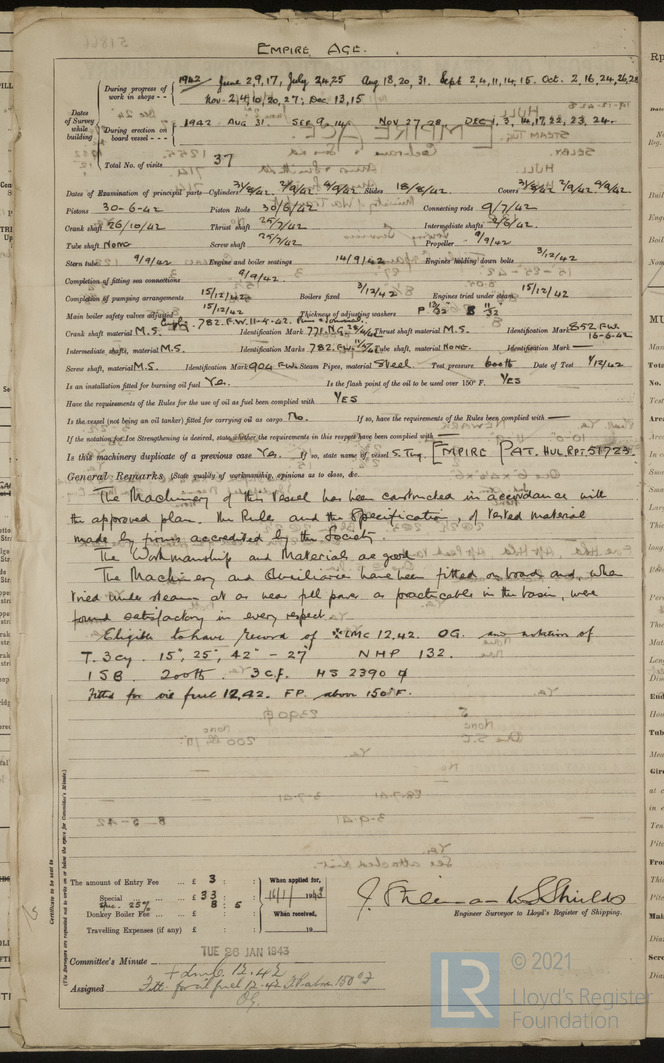 EMPIRE AGE.
During progress of work in shops - - 1942 June 2,9,17, July 24,25 Aug 18,20,31. Sept 2,4,11,14,15. Oct. 2,16,24,26,28
Nov. 2,4,10,20,27; Dec 13,15
Dates of Survey while building
During erection on board vessel - - - 1942 AUG 31. SEP. 9,14, NOV 27,28, DEC 1,3,14,17,22,23,24.
Total No. of visits 37
Dates of Examination of principal parts—Cylinders 31/8/42. 2/9/42 9/9/42 Slides 18/8/42. Covers 31/8/42 2/9/42 9/9/42
Pistons 30-6-42 Piston Rods 30/6/42 Connecting rods 9/7/42
Crank shaft 26/10/42 Thrust shaft 25/7/42 Intermediate shafts
Tube shaft NONE Screw shaft 25/7/42 Propeller - 9/9/42
Stern tube 9/9/42 Engine and boiler seatings 14/9/42 Engines holding down bolts 3/12/42
Completion of fitting sea connections 9/9/42.
Completion of pumping arrangements 15/12/42 Boilers fixed 3/12/42 Engines tried under steam 15/12/42
Main boiler safety valves adjusted 15/12/42 Thickness of adjusting washers P 13/32" S 11/32"
782.F.W. 11-5-42.
Crank shaft material M.S. Identification Mark 771. Thrust shaft material M.S. Identification Mark 852 F.W. 16-6-42
Intermediate shafts, material M.S. Identification Marks 782.F.W. Tube shaft, material NONE. Identification Mark —
Screw shaft, material M.S. Identification Mark 904 F.W. Steam Pipes, material Steel Test pressure 600 lb Date of Test 1/12/42
Is an installation fitted for burning oil fuel Yes. Is the flash point of the oil to be used over 150° F. YES
Have the requirements of the Rules for the use of oil as fuel been complied with YES
Is the vessel (not being an oil tanker) fitted for carrying oil as cargo No. If so, have the requirements of the Rules been complied with —
If the notation for Ice Strengthening is desired, state whether the requirements in this respect have been complied with —
Is this machinery duplicate of a previous case Yes. If so, state name of vessel S. Tug. EMPIRE PAT. HUL. RPT. 51723.
General Remarks (State quality of workmanship, opinions as to class, &c.
The Machinery of this vessel has been constructed in accordance with
the approved plan. The Rules and the Specification, of tested material
made by firms accredited by the Society.
The Workmanship and Materials are good
The Machinery and Auxiliaries have been fitted on board and, when
tried under steam at as near full power as practicable in the basin, were
found satisfactory in every respect.
Eligible to have record of ✠LMC 12,42. OG. and notation of
T. 3cy. 15", 25", 42" - 27" NHP 132.
1SB. 200lb. 3cf. HS 2390 ϕ
Fitted for oil fuel 12,42. FP. above 150°F.
Certificate to be sent to
(The Surveyors are requested not to write on or below the space for Committee's Minute.)
The amount of Entry Fee ... £ 3 : :
Special ... £ 33 : :
Spec. 25% 8 : 5
Donkey Boiler Fee ... £ : :
Travelling Expenses (if any) £ : :
When applied for,
16/1/1943
When received,
19
Engineer Surveyor to Lloyd's Register of Shipping.
TUE 26 JAN 1943
Committee's Minute
Assigned + LMC 12.42
Fitt. for oil fuel 12.42 F.P. above 150°F
OG.
LR
© 2021
Lloyd's Register
Foundation